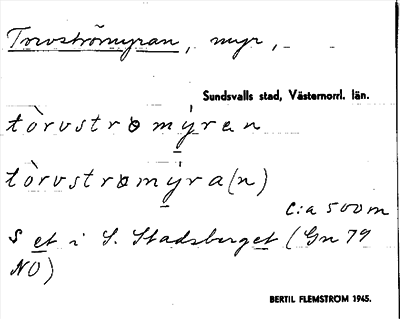 Torvströmyran, myr,
Sundsvalls stad, Västernorrl. län.
tòrvstrømýren
tòrvstrømýra(n)
c:a 500 m
S et i S. Stadsberget (Gn 79
NO)
BERTIL FLEMSTRÖM 1945.